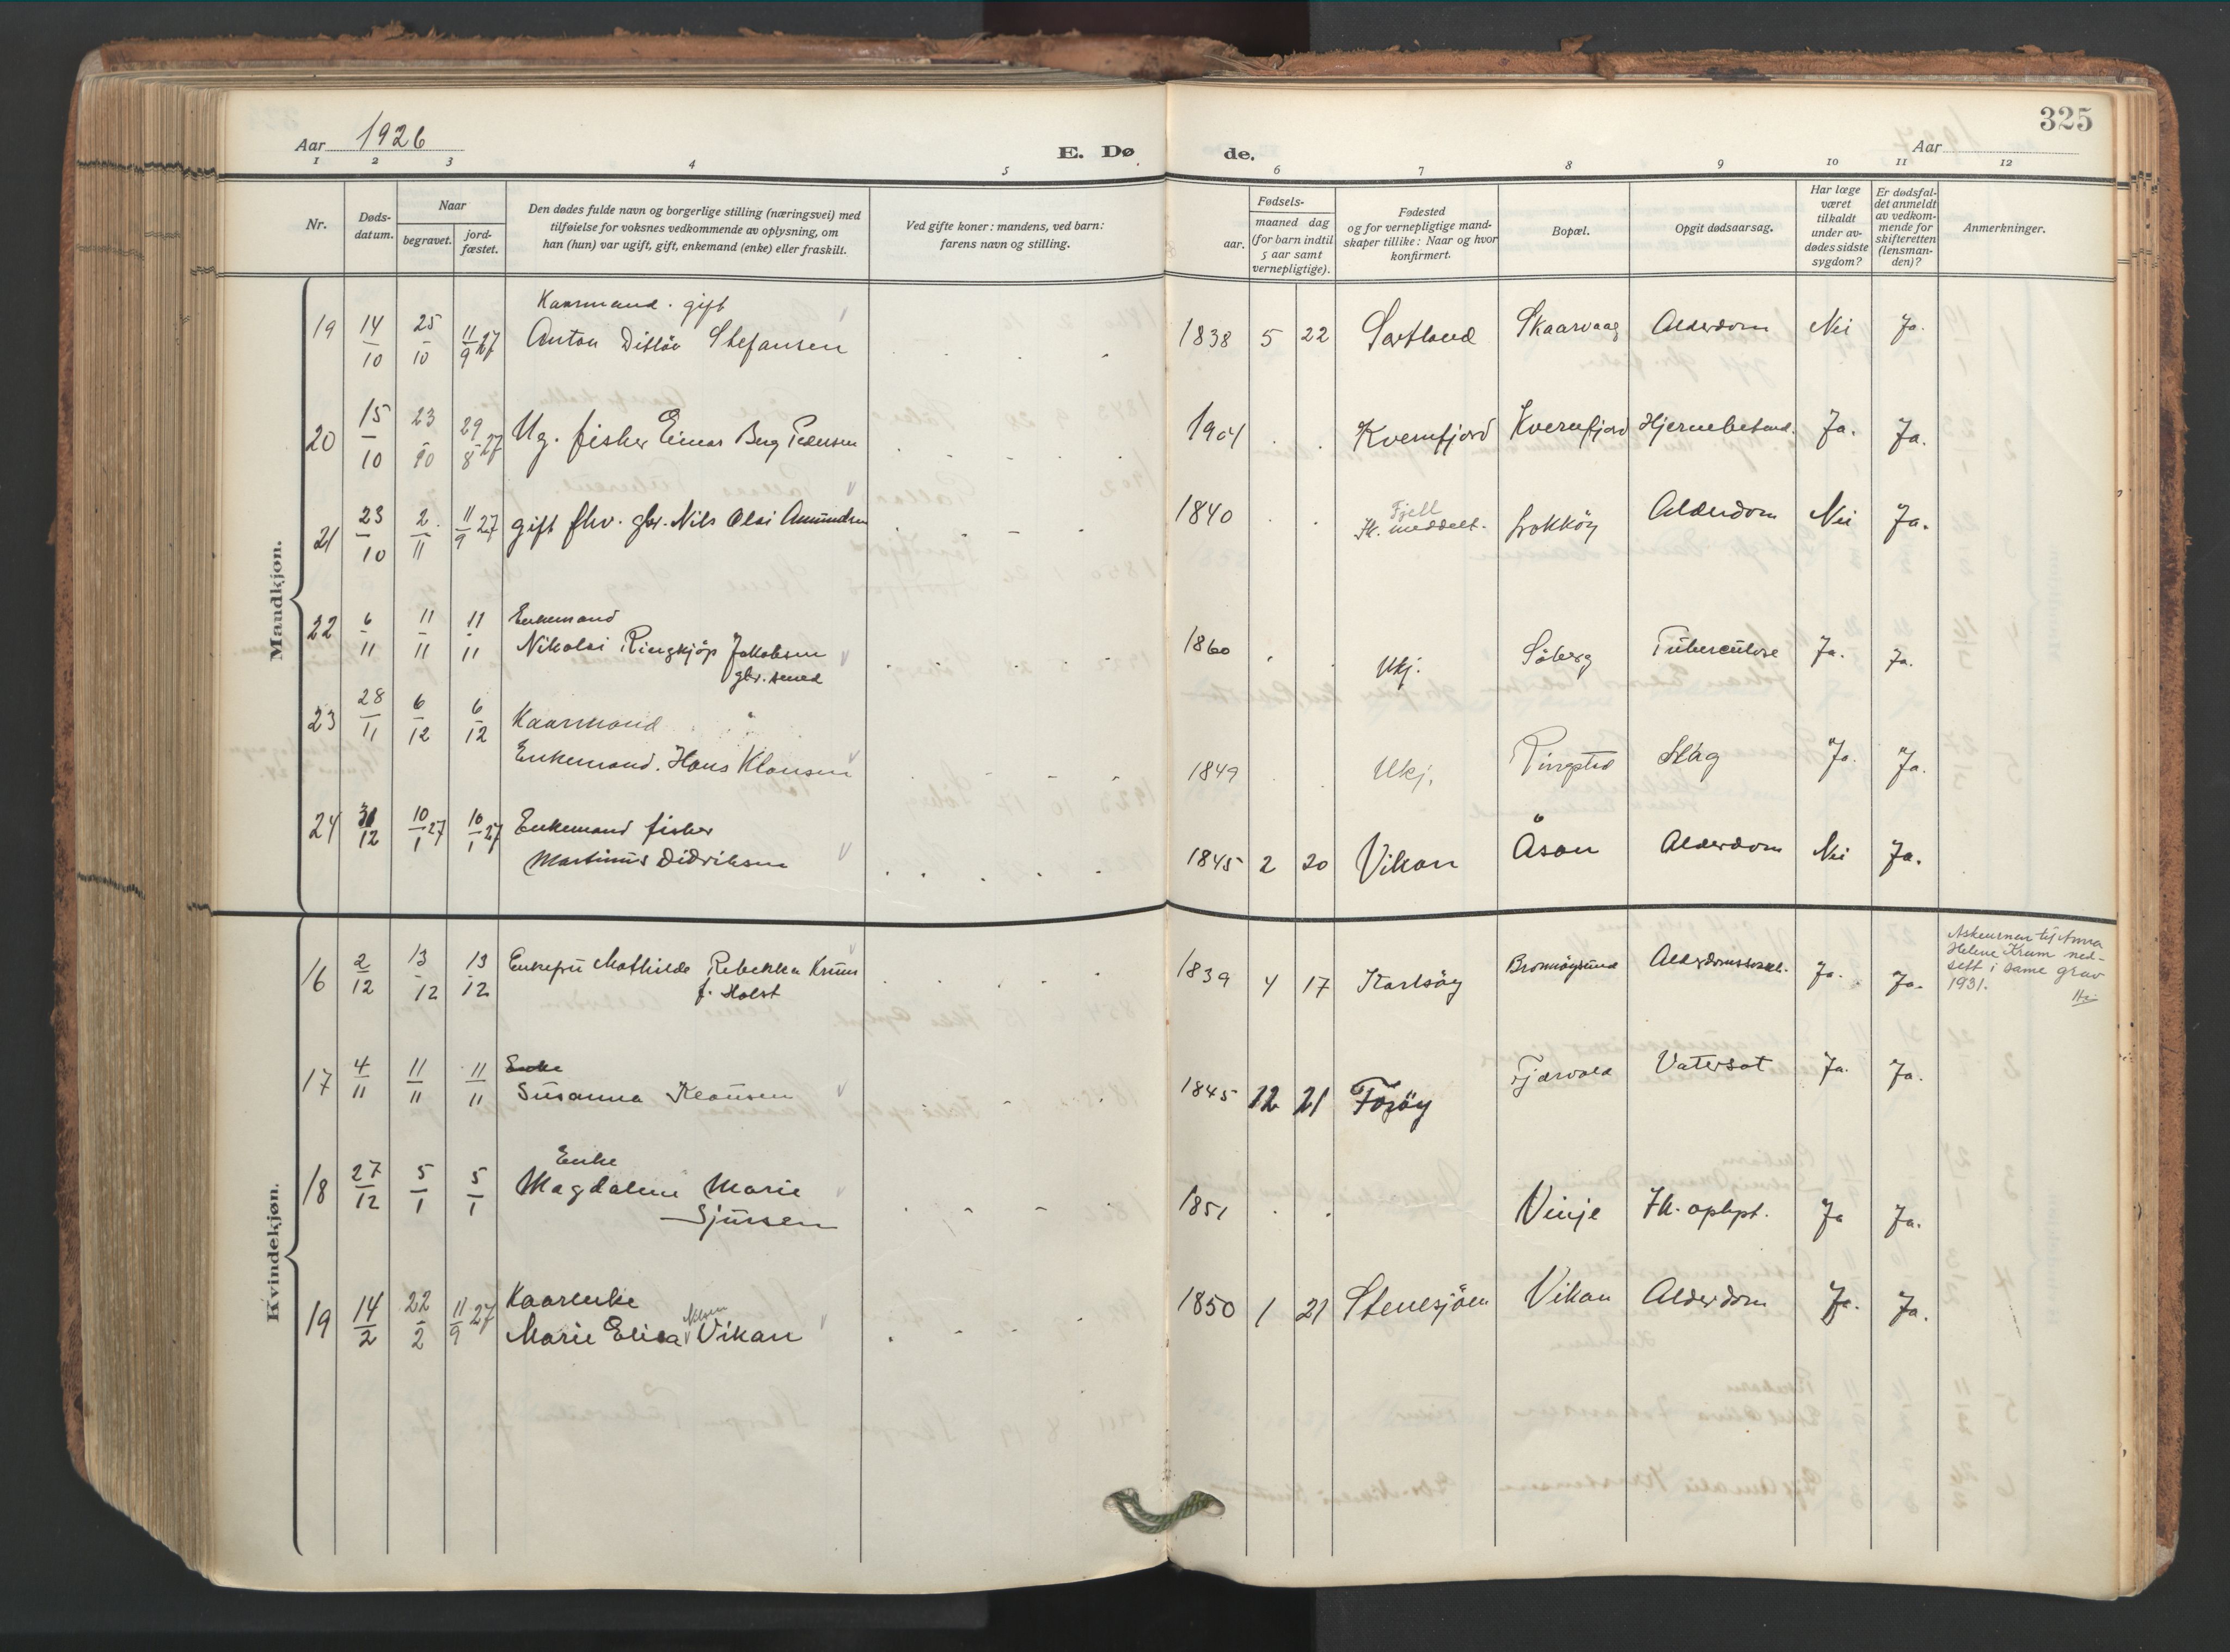 Aar 1926
E. Dø
de.
325
Aar
1 2 3 4 5 6 7 8 9 10 11 12
Nr.
Døds-
datum.
Naar
begravet.
jord-
fæstet.
Den dødes fulde navn og borgerlige stilling (næringsvei) med
tilføielse for voksnes vedkommende av oplysning, om
han (hun) var ugift, gift, enkemand (enke) eller fraskilt.
Ved gifte koner: mandens, ved barn:
farens navn og stilling.
Fødsels-
aar.
maaned dag
(for barn indtil
5 aar samt
vernepligtige).
Fødested
og for vernepligtige mand-
skaper tillike: Naar og hvor
konfirmert.
Bopæl.
Opgit dødsaarsag.
Har læge
været
tilkaldt
under av-
dødes sidste
sygdom?
Er dødsfal-
det anmeldt
av vedkom-
mende for
skifteretten
(lensman-
den)?
Anmerkninger.
Mandkjøn.
Kaarmand. gift
19 14/10 25/10 11/9 27 Anton Ditløv Stefansen 1838 5 22 Sortland Skaarvaag Alderdom Nei Ja.
20 15/10 23/10 29/8 27 Ug. fisker Einar Berg Pedersen 1904 Kvernfjord Kvernfjord Ja. Ja.
Fjell
21 23/10 2/11 11/9 27 gift fhv. gbr. Nils Olai Amundsen 1840 Ik. meddelt. Alderdom Nei Ja.
Enkemand
22 6/11 11/11 11/11 Nikolai Ringkjøp Jakobsen 1860 Ukj. Søberg Tuberculose Ja. Ja.
gbr. smed
23 28/11 6/12 6/12 Kaarmand
Enkemand. Hans Klausen 1849 Ukj. Ringstad Slag Ja. Ja.
24 31/12 10/1 27 10/1 27 Enkemand fisker
Martinus Didriksen 1845 2 20 Vikan Åsan Alderdom Nei Ja.
Kvindekjøn.
16 2/12 13/12 13/12 Enkefru Mathilde Rebekka Krum 1839 4 17 Karlsøy Bronnøysund Ja. Ja.
f. Holst
Askeurnen til Anna
Helene Krum ned-
sett i same grav
1931.
Enke
17 4/11 11/11 11/11 Susanna Klausen 1845 12 21 Forøy Fjærvold Vatersot Ja. Ja.
Enke
18 27/12 5/1 5/1 Magdalena Marie
Sjursen 1851 Vinje Ik. oplyst. Ja Ja.
Kaarenke
19 14/2 22/2 11/9 27 Marie Elisa Vikan 1850 1 21 Stenesjøen Vikan Alderdom Ja. Ja.